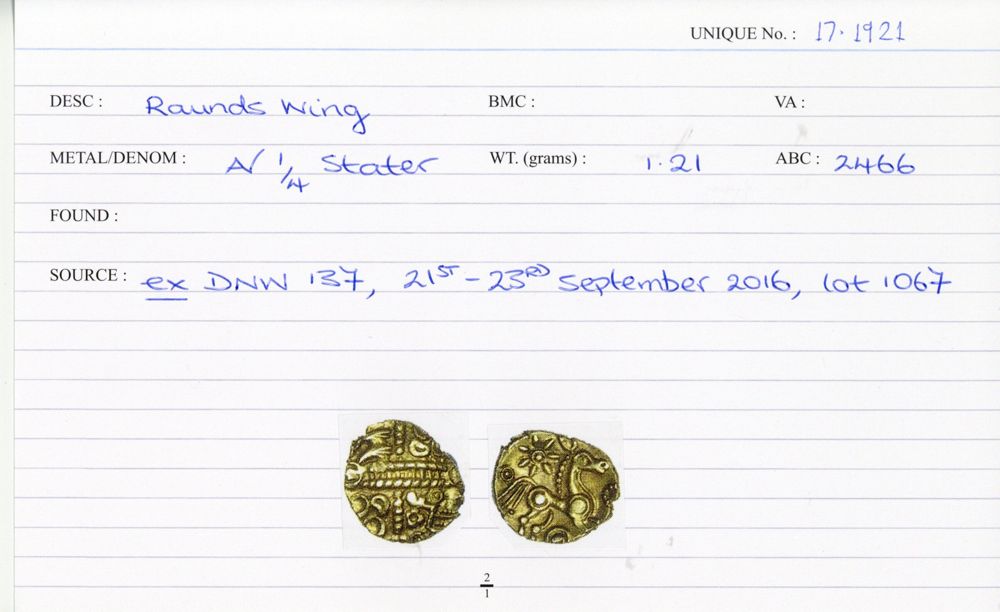 UNIQUE No. : 17.1921
DESC : Raunds Wing BMC : VA :
METAL/DENOM : A/ 1/4 Stater WT. (grams) : 1.21 ABC : 2466
FOUND :
SOURCE : ex DNW 137, 21ST - 23RD September 2016, lot 1067
2
1